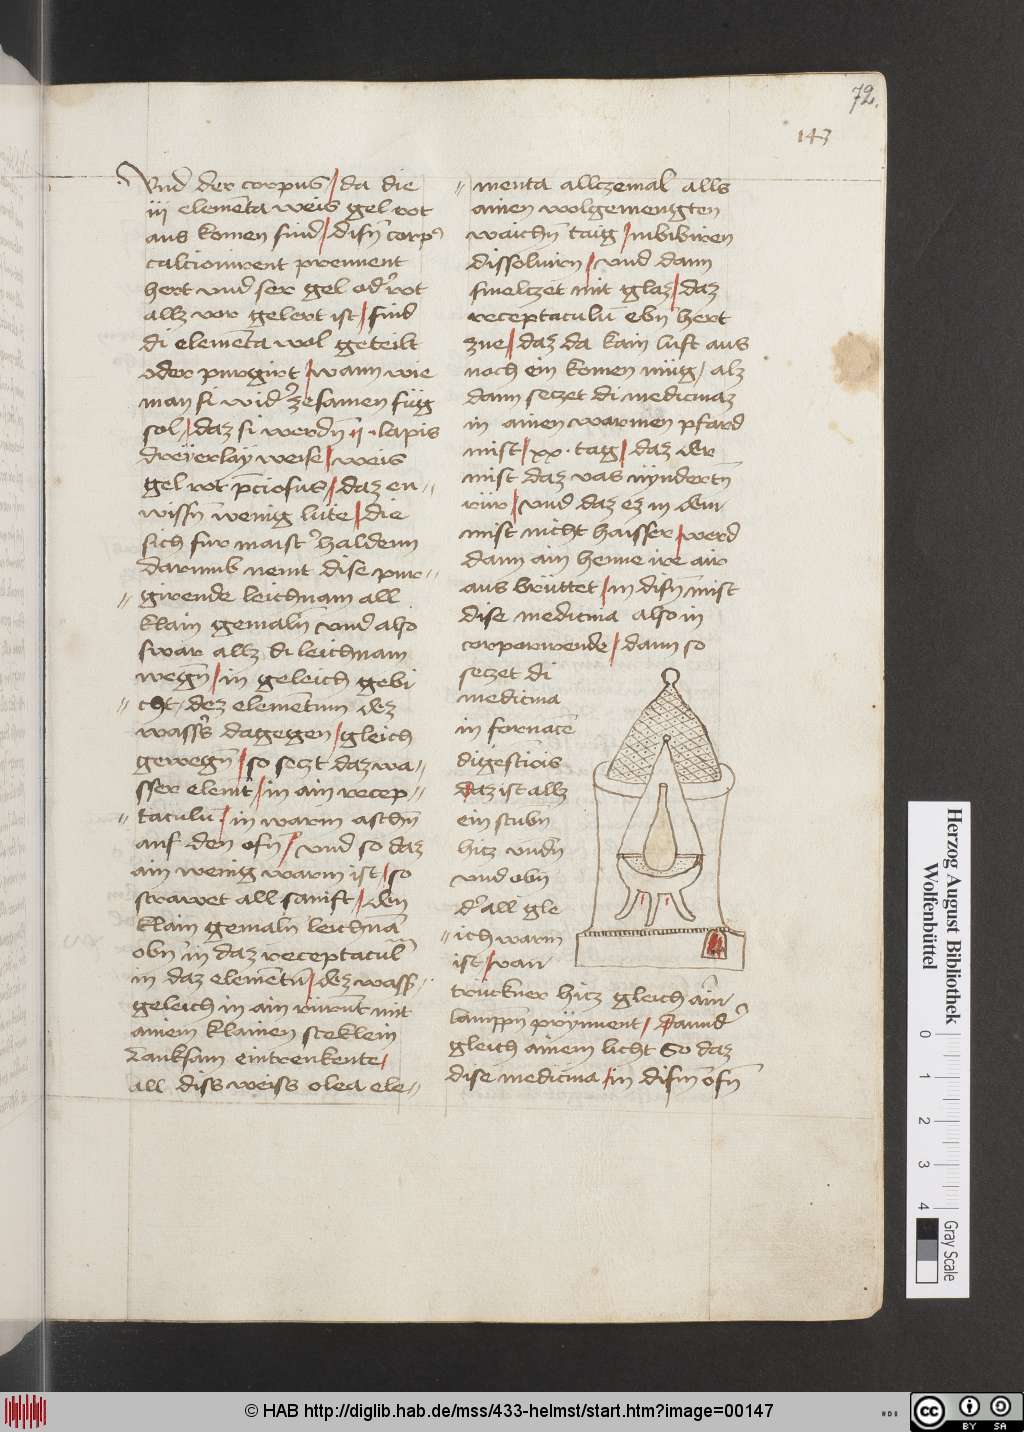 72.
147
Vnd der corpus / da die
iij elementa weis gel rot
aus komen sind / disñ corpꝰ
calcionirent prennent
hert vnd ser gel odʼ rot
allz vor gelert ist / sind
di elementa wol geteilt
oder purgirt / wann wie
man si widʼ zesamen füg
sol / daz si werdñ · lapis
dreyerlay weise / weis
gel rot p̄ciosus / daz en
wissñ wenig lüte / die
sich fur maistʼ haldenn
darumb nemt dise pur
girende leichnam all
klain gemalñ vnd also
swär allz di leichnam
wegñ / in geleich gebi
cht / dez elementum dez
wassʼs dagegen / gleich
gewegñ / so seczt daz wa
sser elemt / in ain recep
taculū / in warm aschñ
auf den ofñ / vnd so daz
ain wenig warm ist / so
strawet all sanift / den
klain gemalñ leichnā
obñ in daz receptaculū
in daz elementū / dez wassʼ
geleich in ain mit
ainem klainen steklein
Lanksam eintrenkente /
all diss weiss olea ele
menta allczemal alls
ainen wolgemengten
waichñ taig / inbibiren
dissoluirn / vnd dann
smelczet mit glaz / daz
receptaculū ebñ hert
zue / daz da kain luft aus
noch ein komen müg / alz
dann seczet di medicinaz
in ainen warmen pfard
mist / xx · tag / daz der
mist daz vas nyndertñ
rür / vnd daz ez in dem
mist nicht haisser / werd
dann ain henne ire air
aus brüttet / in disñ mist
dise medicina also in
corporirende / dann so
seczet di
medicina
in fornace
digestiōis
daz ist allz
ein stubñ
hicz vndñ
vnd obñ
dʼ all gle
ich warm
ist / von
truckner hicz gleich aim
lamppñ prynnent /
gleich ainem licht So daz
dise medicina / in dism ofñ
Herzog August Bibliothek
Wolfenbüttel
0 1 2 3 4
Gray Scale
© HAB http://diglib.hab.de/mss/433-helmst/start.htm?image=00147
cc BY SA